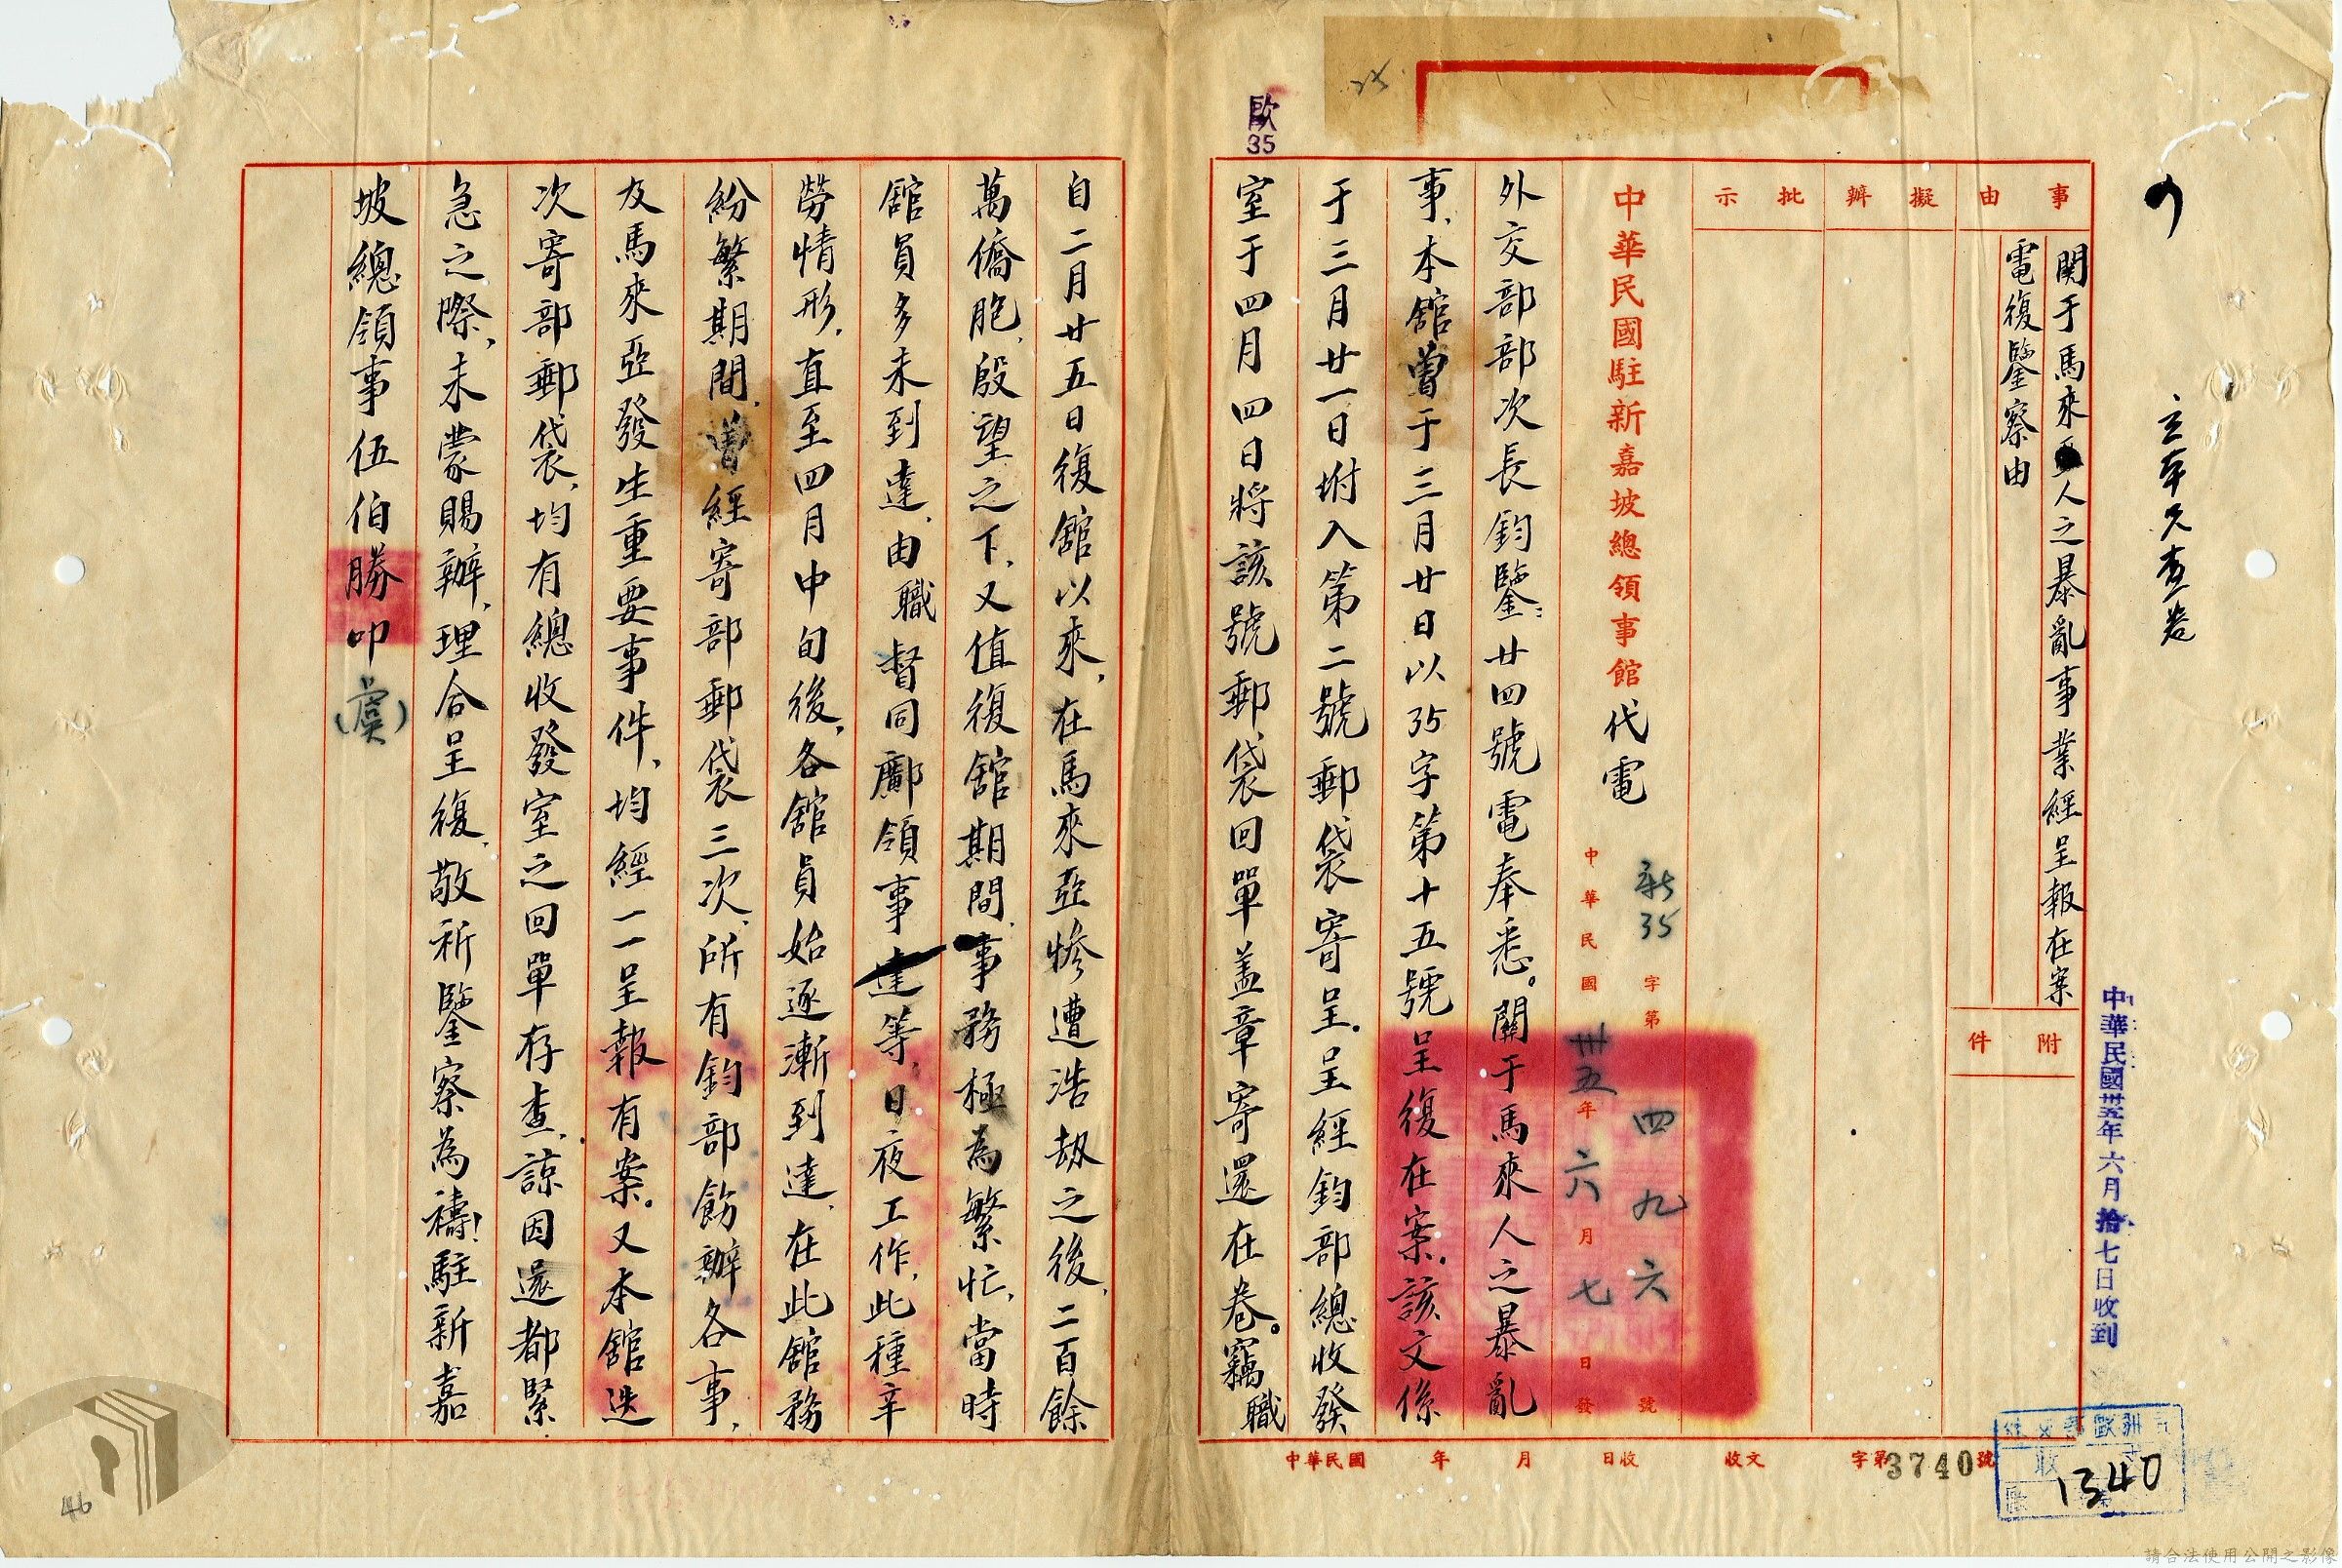 立本久查卷
中華民國卅五年六月拾七日收到
事由
関于馬來亞人之暴亂事業經呈報在案
電復鑒察由
附件
擬辦
批示
中華民國駐新嘉坡總領事館代電
新35字第四九六號
中華民國卅五年六月七日發
外交部部次長鈞鑒：廿四號電奉悉。關于馬來人之暴亂
事，本舘曾于三月廿日以35字第十五號呈復在案，該文係
于三月廿一日坿入第二號郵袋寄呈。呈經鈞部總收發
室于四月四日將該號郵袋回單蓋章寄還在卷。竊職
歐
35
25
自二月廿五日復舘以來，在馬來亞慘遭浩劫之後，二百餘
萬僑胞，殷望之下，又值復舘期間，事務極為繁忙，當時
舘員多未到達，由職督同鄺領事達等，日夜工作，此種辛
勞情形，直至四月中旬後，各舘員始逐漸到達，在此舘務
紛繁期間，曾經寄部郵袋三次，所有鈞部飭辦各事，
及馬來亞發生重要事件，均經一一呈報有案。又本舘迭
次寄部郵袋，均有總收發室之回單存查，諒因還都緊
急之際，未蒙賜辦，理合呈復，敬祈鑒察為禱！駐新嘉
坡總領事伍伯勝叩(虞)
中華民國 年 月 日收 收文 字第3740號
收
1340
46
請合法使用公開之影像